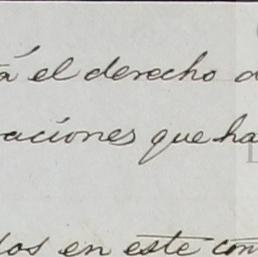 á el derecho d
raciones que ha
dos en este con